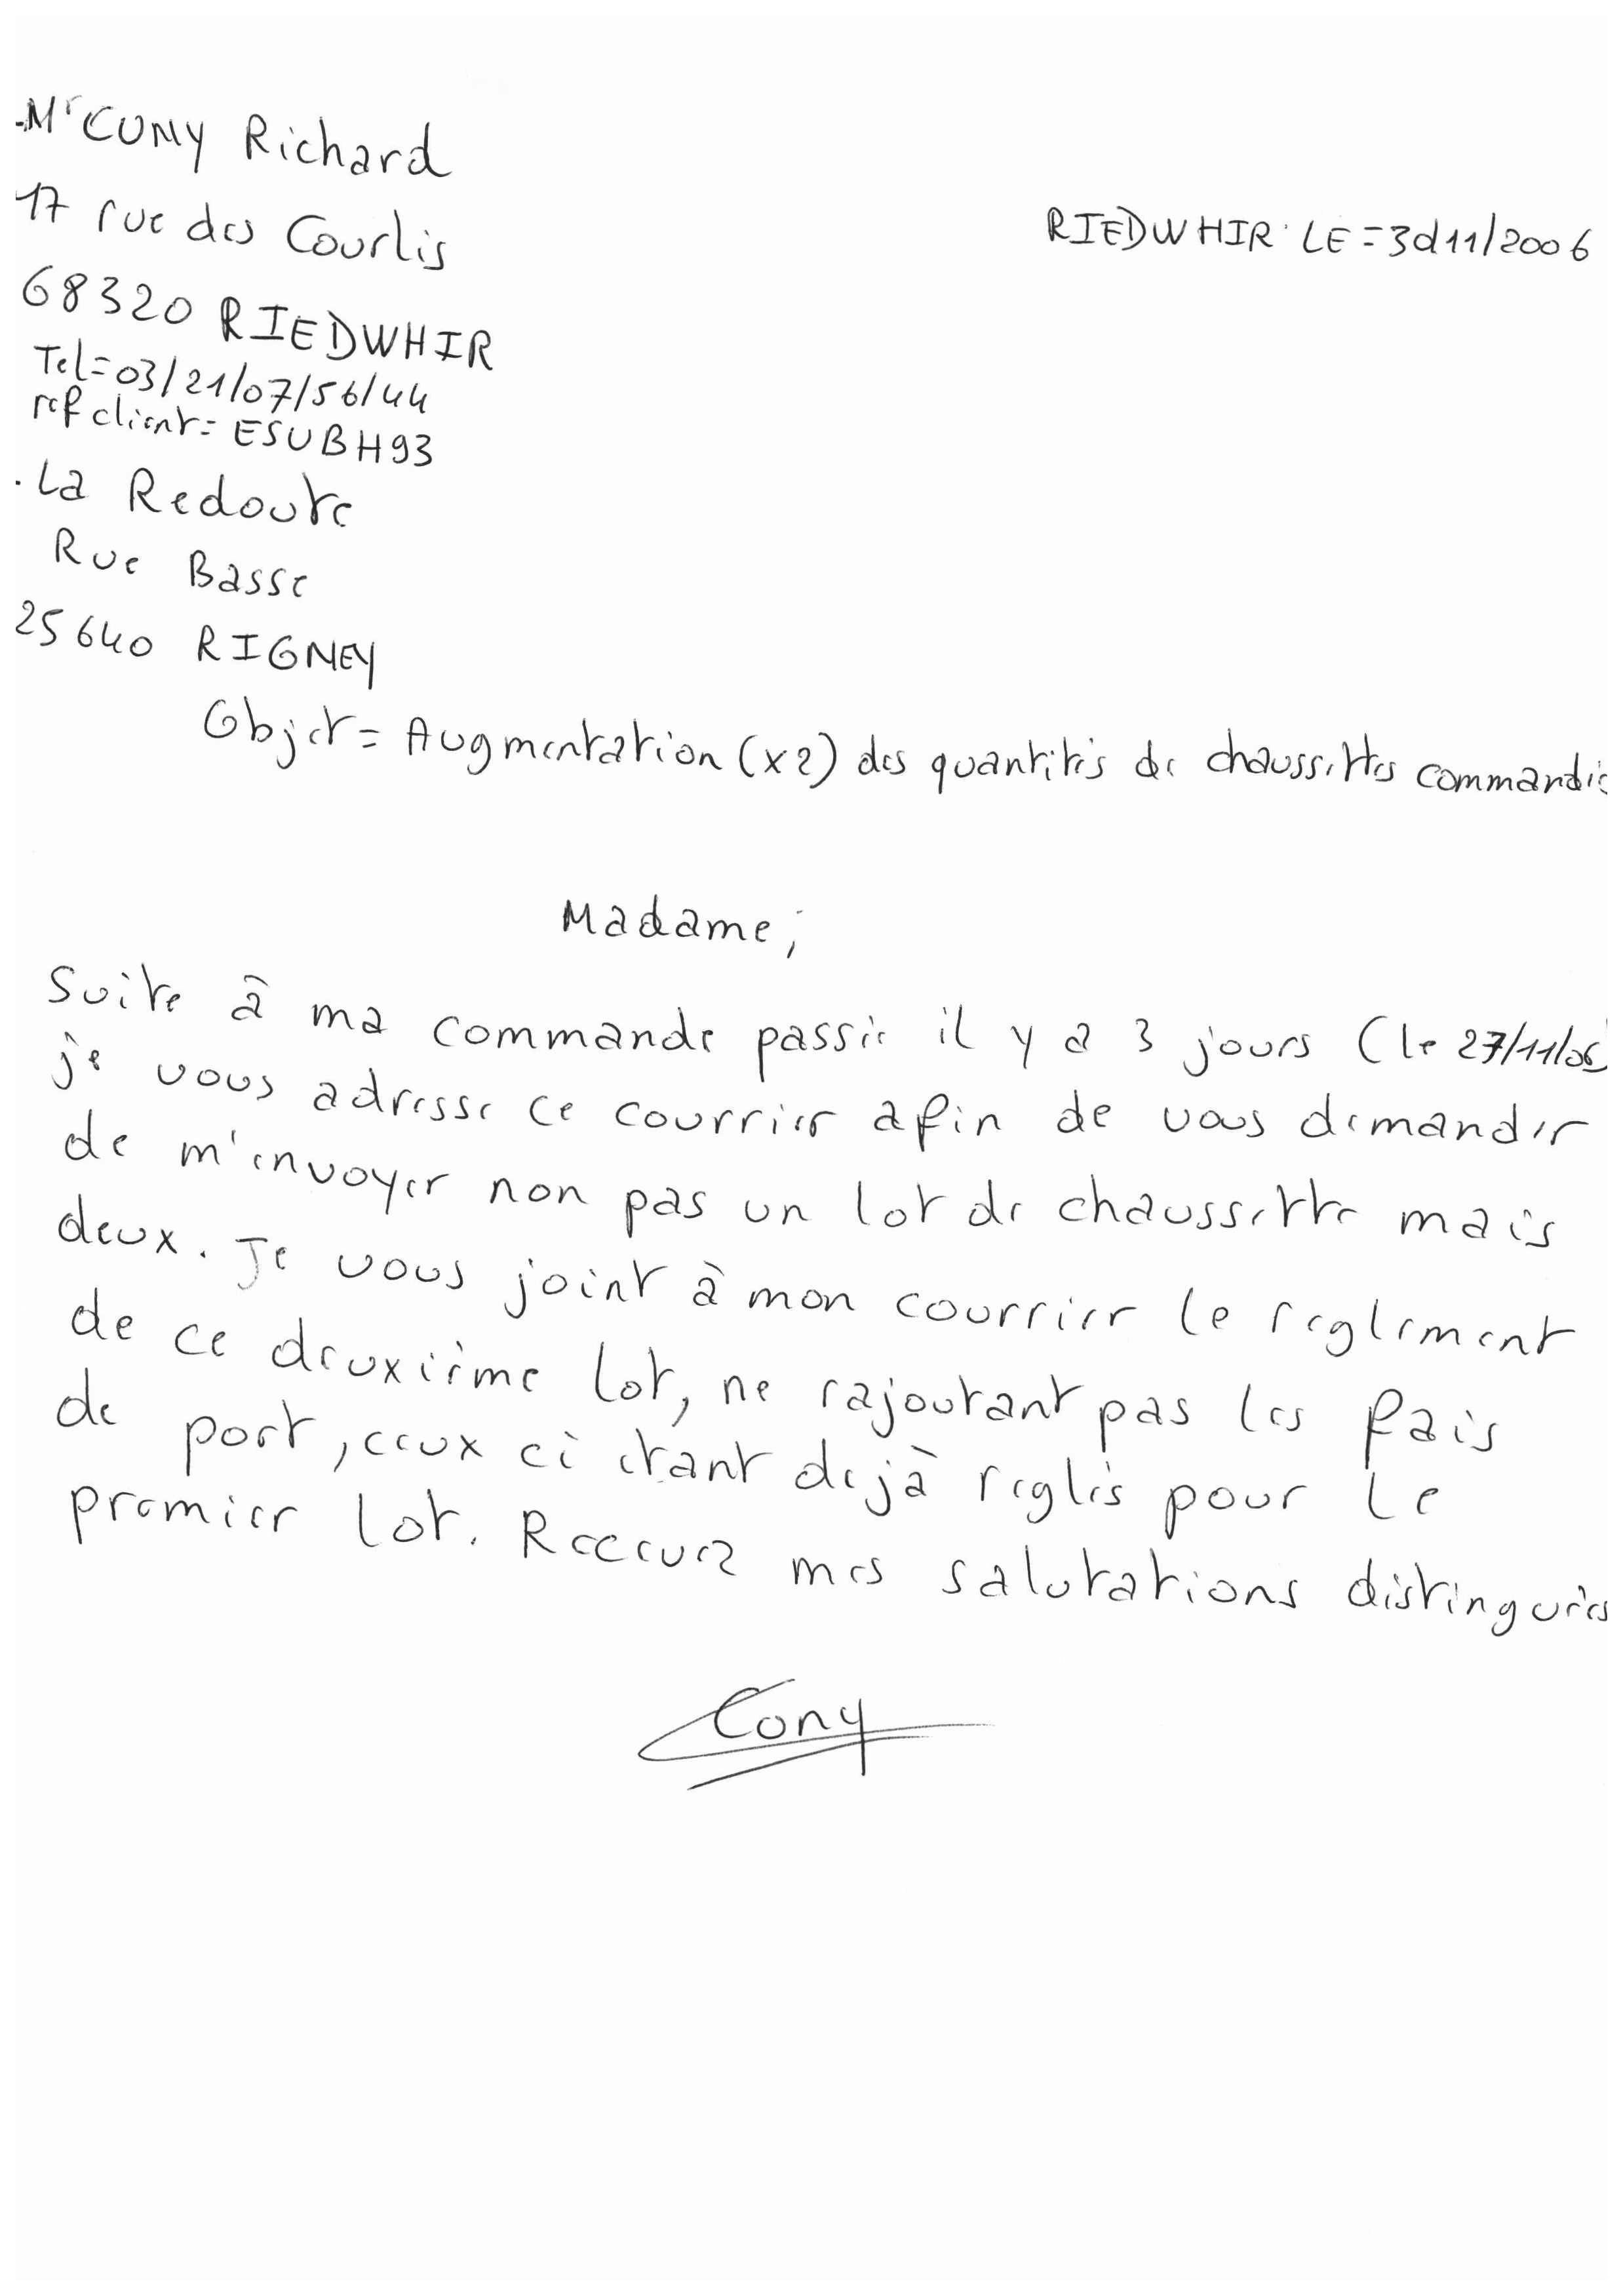 Mr CUNY Richard
17 rue des Courlis
68320 RIEDWHIR
Tel=03/21/07/56/44
ref client= ESUBH93
RIEDWHIR LE=30/11/2006
. La Redoute
Rue Basse
25640 RIGNEY
Objet= Augmentation (x2) des quantités de chaussettes commandée
Madame,
Suite à ma commande passée il y a 3 jours (le 27/11/06)
je vous adresse ce courrier afin de vous demander
de m'envoyer non pas un lot de chaussette mais
deux. Je vous joint à mon courrier le reglement
de ce deuxième lot, ne rajoutant pas les fais
de port, ceux ci etant dejà reglés pour le
premier lot. Recevez mes salutations distinguées
Cony